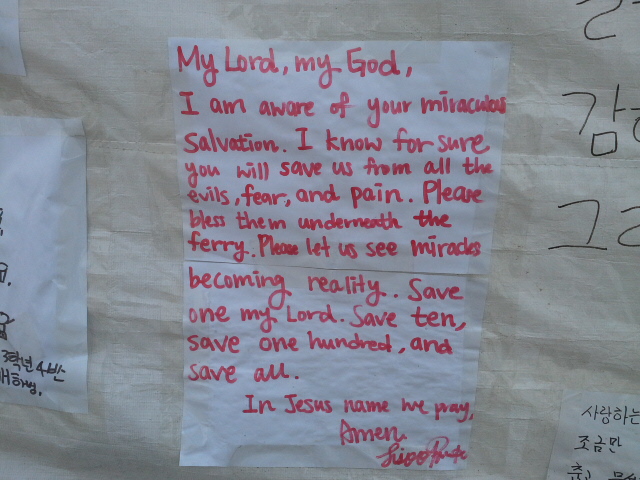 My Lord, my God,
I am aware of your miraculous
salvation. I know for sure
you will save us from all the
evils, fear, and pain. Please
bless them underneath the
ferry. Please let us see miracles
becoming reality. Save
one my Lord. Save ten,
save one hundred, and
save all.
In Jesus name we pray,
Amen.
3학년 4반
사랑하는
조금만